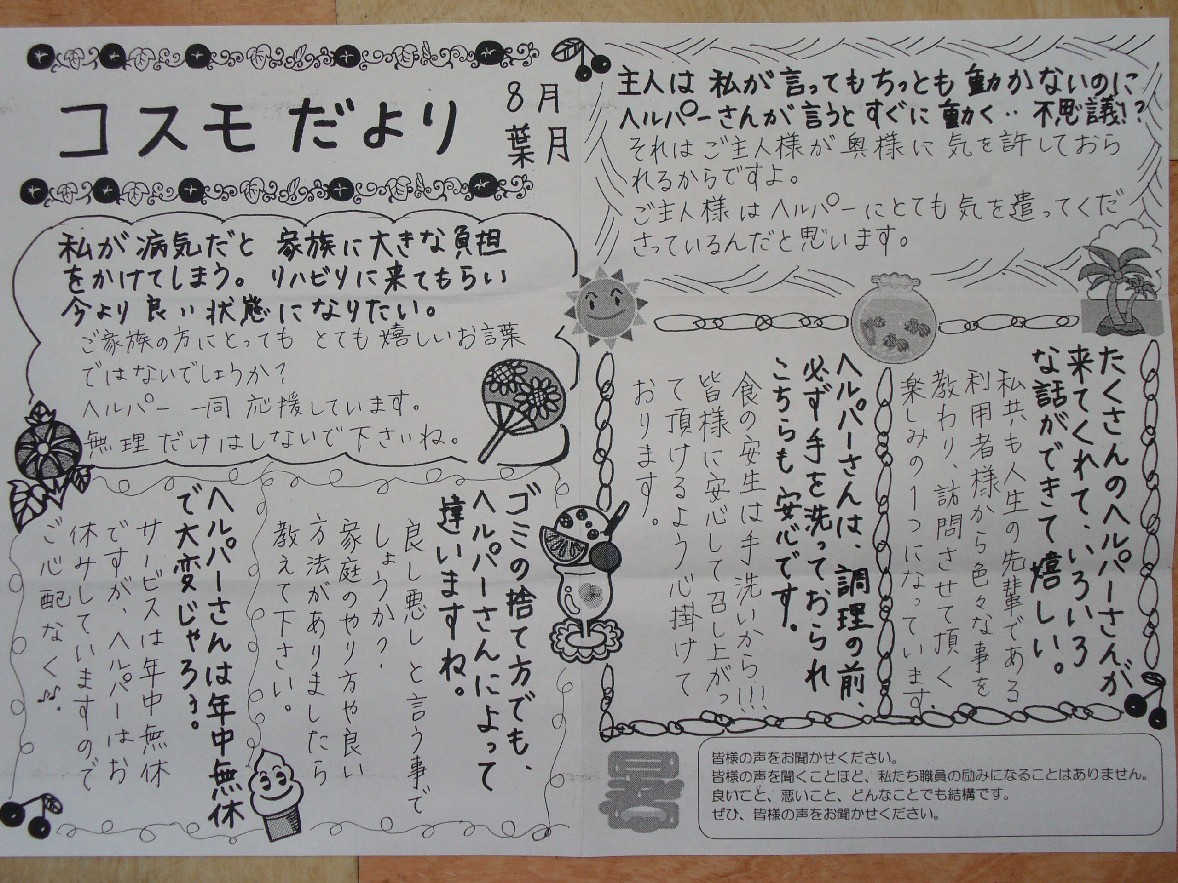 コスモだより
8月
葉月
私が病気だと 家族に大きな負担
をかけてしまう。リハビリに来てもらい
今より良い状態になりたい。
ご家族の方にとっても とても嬉しいお言葉
ではないでしょうか？
ヘルパー一同 応援しています。
無理だけはしないで下さいね。
主人は 私が言ってもちっとも動かないのに
ヘルパーさんが言うとすぐに動く‥不思議!?
それはご主人様が奥様に気を許しておら
れるからですよ。
ご主人様はヘルパーにとても気を遣ってくだ
さっているんだと思います。
たくさんのヘルパーさんが
来てくれて、いろいろ
な話ができて嬉しい。
私共も人生の先輩である
利用者様から色々な事を
教わり、訪問させて頂く
楽しみの1つになっています。
ヘルパーさんは、調理の前、
必ず手を洗っておられ
こちらも安心です。
食の安生は手洗いから!!!
皆様に安心して召し上がっ
て頂けるよう心掛けて
おります。
ゴミの捨て方でも、
ヘルパーさんによって
違いますね。
良し悪しと言う事で
しょうか？
家庭のやり方や良い
方法がありましたら
教えて下さい。
ヘルパーさんは年中無休
で大変じゃろう。
サービスは年中無休
ですが、ヘルパーはお
休みしていますので
ご心配なく♪。
暑
皆様の声をお聞かせください。
皆様の声を聞くことほど、私たち職員の励みになることはありません。
良いこと、悪いこと、どんなことでも結構です。
ぜひ、皆様の声をお聞かせください。